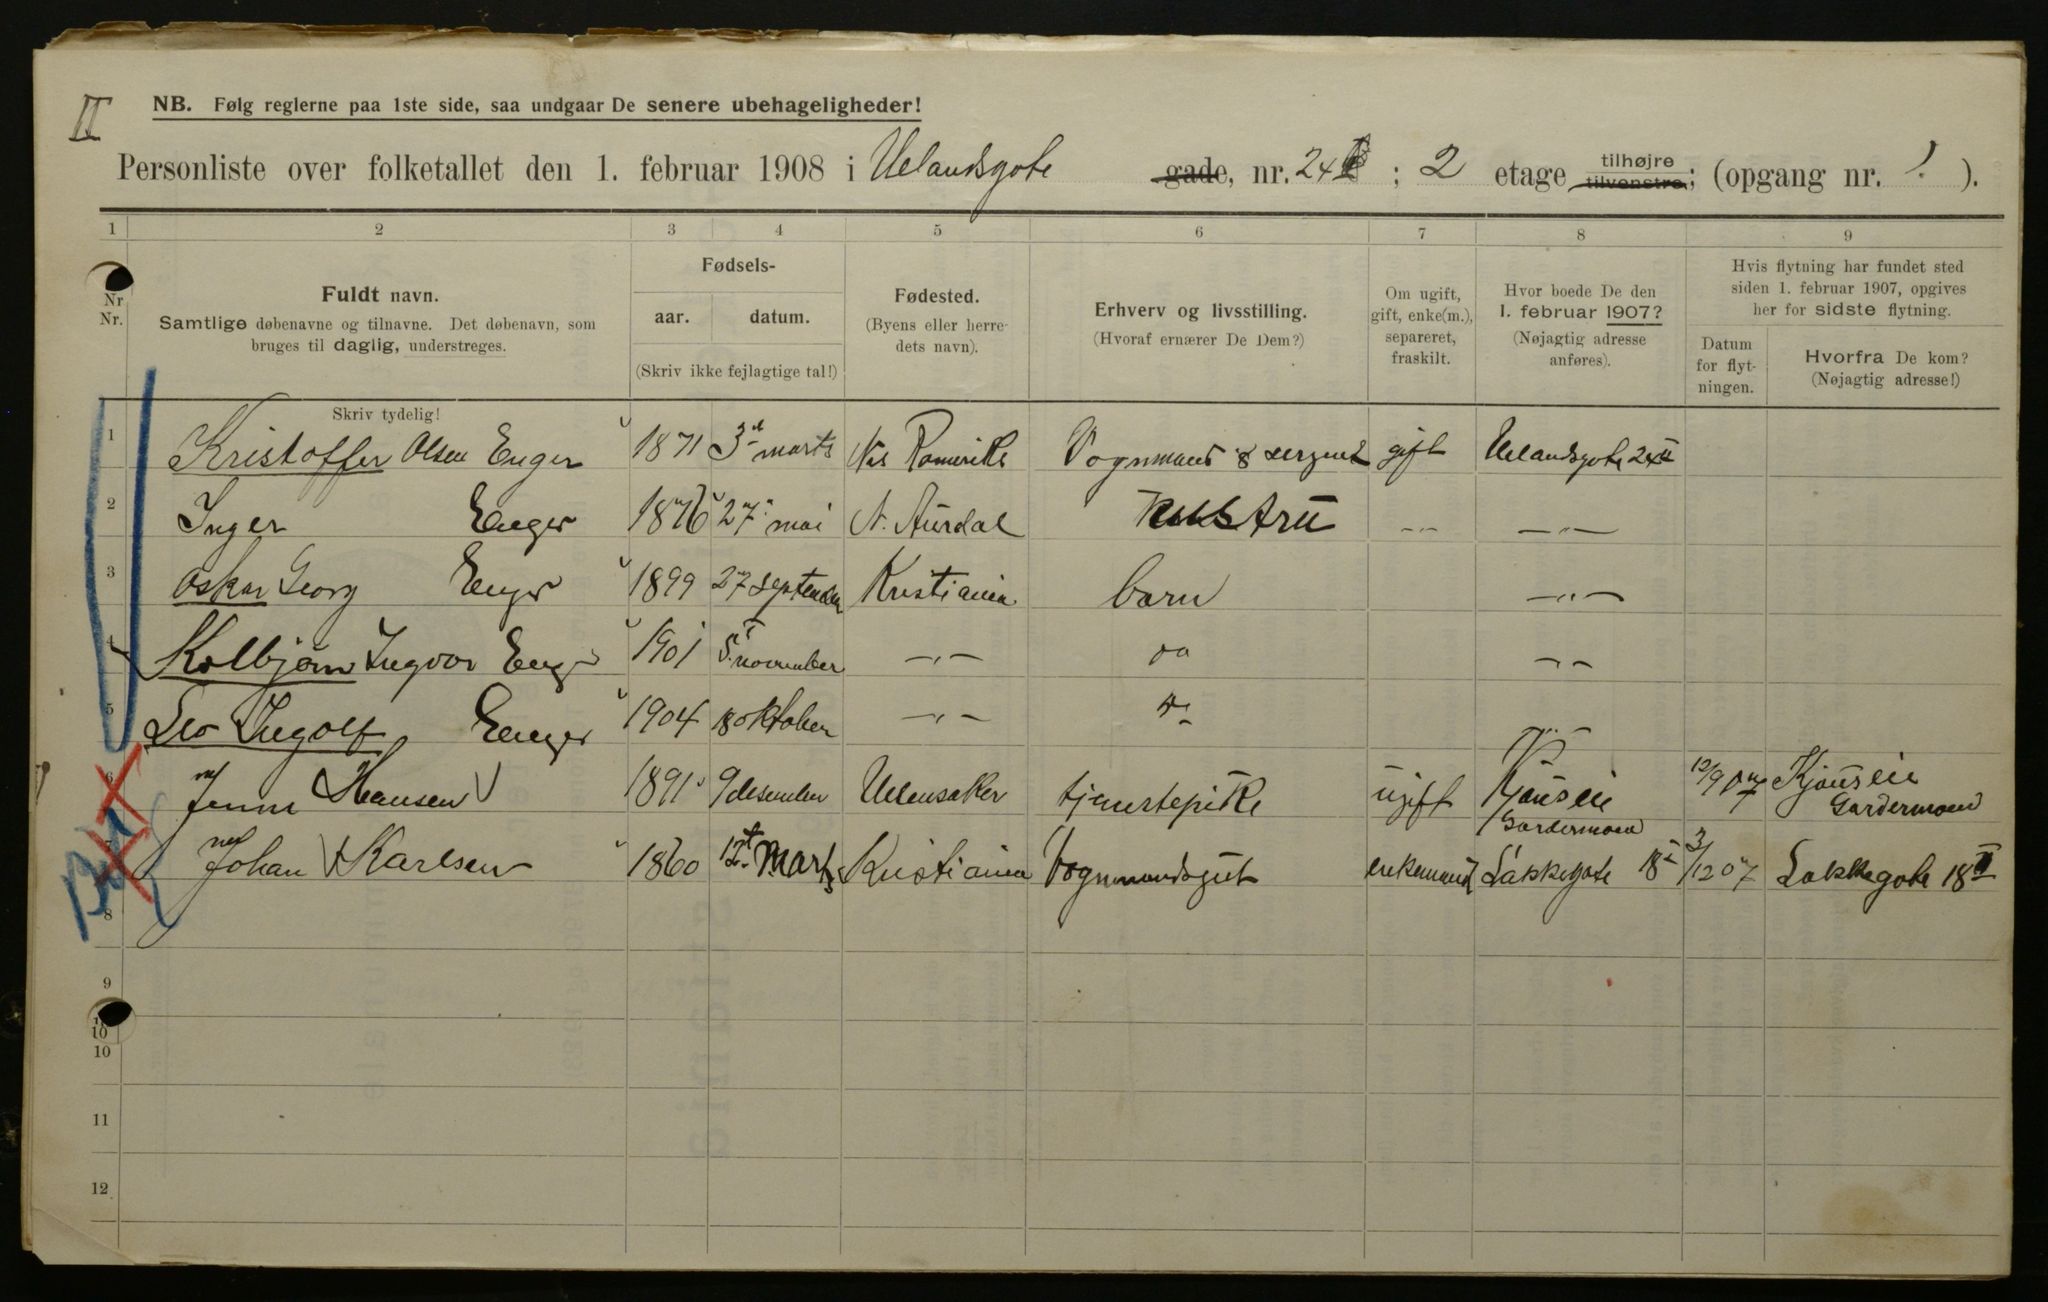 II
NB. Følg reglerne paa 1ste side, saa undgaar De senere ubehageligheder!
Personliste over folketallet den 1. februar 1908 i Uelandsgate gade, nr. 24 ; 2 etage tilhøjre tilvenstre; (opgang nr. 1 ).
1 2 3 4 5 6 7 8 9
Nr. Nr.
Fuldt navn.
Samtlige døbenavne og tilnavne. Det døbenavn, som
bruges til daglig, understreges.
Skriv tydelig!
Fødsels-
aar. datum.
(Skriv ikke fejlagtige tal!)
Fødested.
(Byens eller herre-
dets navn).
Erhverv og livsstilling.
(Hvoraf ernærer De Dem?)
Om ugift,
gift, enke(m.),
separeret,
fraskilt.
Hvor boede De den
1. februar 1907?
(Nøjagtig adresse
anføres).
Hvis flytning har fundet sted
siden 1. februar 1907, opgives
her for sidste flytning.
Datum
for flyt-
ningen.
Hvorfra De kom?
(Nøjagtig adresse!)
1 Kristoffer Olsen Enger 1871 3 marts Nes Romerike Vognmand & sergent gift Uelandsgate 24 II
2 Inger Enger 1876 27 mai N. Aurdal Hustru -„- -„-
3 Oskar Georg Enger 1899 27 september Kristiania barn -„-
4 Kolbjørn Ingvar Enger 1901 5. november -„- do -„-
5 Leo Ingolf Enger 1904 18 oktober -„- do -„-
6 Jenni Hansen 1891 9 desember Ullensaker tjenestepike ugift Kjønseie Gardermoen 12/9 07 Kjønseie Gardermoen
7 Johan Karlsen 1860 12 Marts Kristiania Vognmandsgut enkemand Lakkegate 18 3/12 07 Lakkegate 18 II
8
9
10
10
11
12